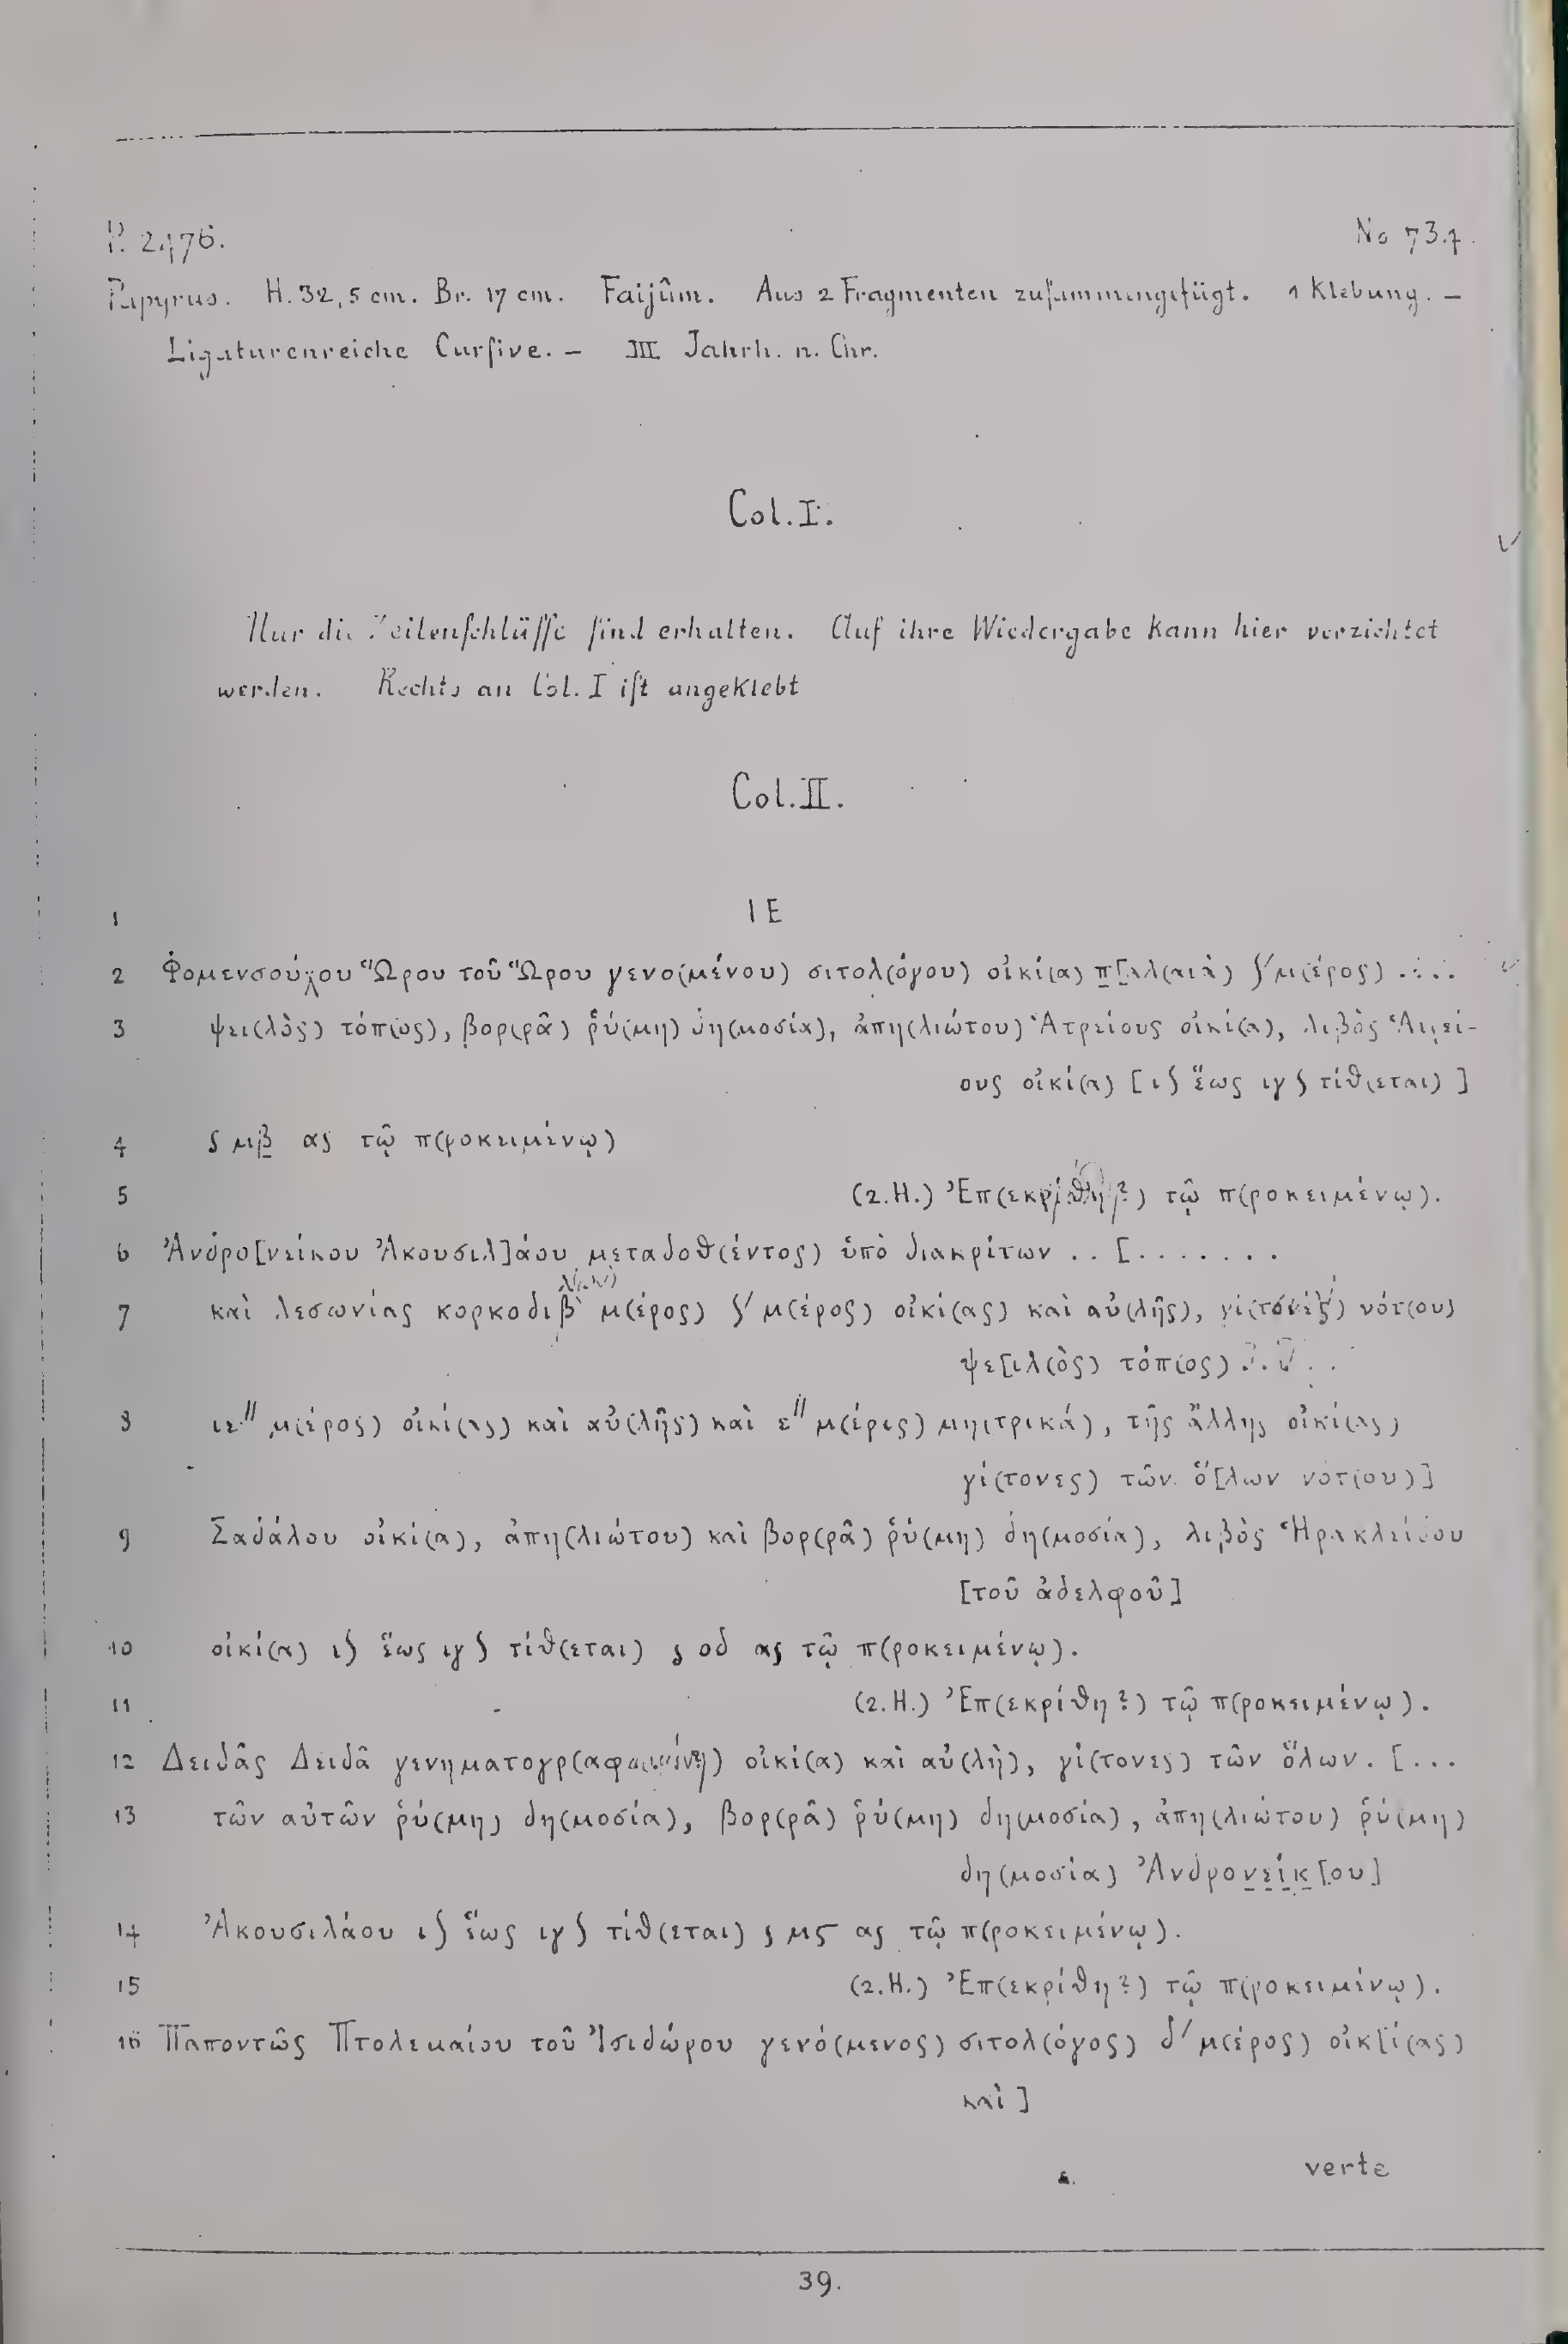 P. 2476. No 734.
Papyrus. H. 32,5 cm. Br. 17 cm. Faijûm. Aus 2 Fragmenten zuſammengefügt. 1 Klebung. —
Ligaturenreiche Curſive. — III Jahrh. n. Chr.
Col. I.
Nur die Zeilenſchlüſſe ſind erhalten. Auf ihre Wiedergabe kann hier verzichtet
werden. Rechts an Col. I iſt angeklebt
Col. II.
1 ΙΕ
2 Φομενσούχου Ὥρου τοῦ Ὥρου γενο(μένου) σιτολ(όγου) οἰκί(α) π[αλ(αιὰ) ϛ´ μ(έρος) .....
3 ψει(λὸς) τόπ(ος), βορ(ρᾶ) ῥύ(μη) δη(μοσία), ἀπη(λιώτου) Ἁτρείους οἰκί(α), λιβὸς
ους οἰκί(α) [ιϛ ἕως ιγϛ τίθ(εται)]
4 ϛ μβ ας τῷ π(ροκειμένῳ)
5 (2. H.) Ἐπ(εκρίθη?) τῷ π(ροκειμένῳ).
6 Ἀνδρο[νείκου Ἀκουσιλ]άου μεταδοθ(έντος) ὑπὸ διακρίτων .. [.......
7 καὶ λεσωνίας κορκοδιβ` μ(έρος) ϛ´ μ(έρος) οἰκί(ας) καὶ αὐ(λῆς), γί(τονες) νότ(ου)
ψε[ιλ(ὸς) τόπ(ος)
8 ιε´´ μ(έρος) οἰκί(ας) καὶ αὐ(λῆς) καὶ ε´´ μ(έρος) μη(τρικά), τῆς ἄλλης οἰκί(ας)
γί(τονες) τῶν ὅ[λων νότ(ου)]
9 Σαδάλου οἰκί(α), ἀπη(λιώτου) καὶ βορ(ρᾶ) ῥύ(μη) δη(μοσία), λιβὸς Ἡρακλείδου
[τοῦ ἀδελφοῦ]
10 οἰκί(α) ιϛ ἕως ιγϛ τίθ(εται) ϛ οδ ας τῷ π(ροκειμένῳ).
11 (2. H.) Ἐπ(εκρίθη?) τῷ π(ροκειμένῳ).
12 Δειδᾶς Δειδᾶ οἰκί(α) καὶ αὐ(λὴ), γί(τονες) τῶν ὅλων . [...
13 τῶν αὐτῶν ῥύ(μη) δη(μοσία), βορ(ρᾶ) ῥύ(μη) δη(μοσία), ἀπη(λιώτου) ῥύ(μη)
δη(μοσία) Ἀνδρονείκ[ου]
14 Ἀκουσιλάου ιϛ ἕως ιγϛ τίθ(εται) ϛ μϛ ας τῷ π(ροκειμένῳ).
15 (2. H.) Ἐπ(εκρίθη?) τῷ π(ροκειμένῳ).
16 Παποντῶς Πτολεμαίου τοῦ Ἰσιδώρου γενό(μενος) σιτολ(όγος) δ´ μ(έρος) οἰκ[ί(ας)
καὶ]
verte
39.